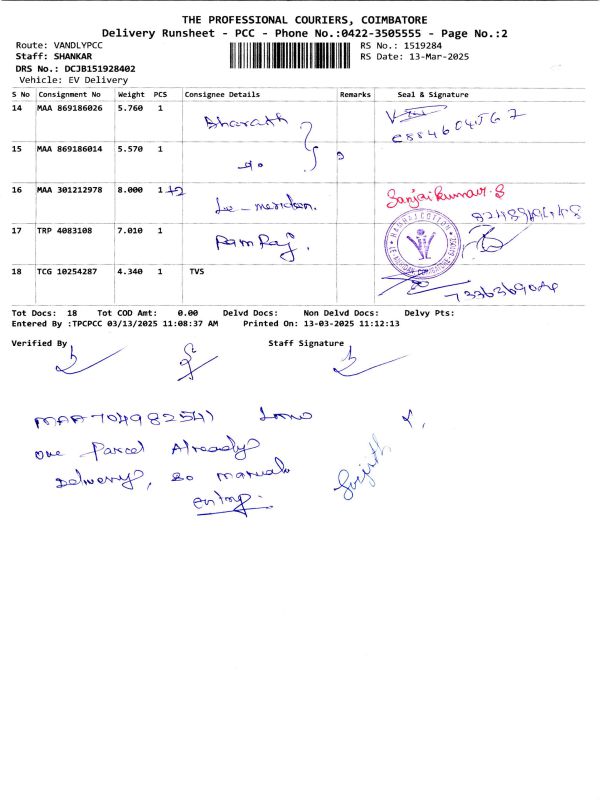 THE PROFESSIONAL COURIERS, COIMBATORE
Delivery Runsheet - PCC - Phone No.:0422-3505555 - Page No.:2
Route: VANDLYPCC
Staff: SHANKAR
DRS No.: DCJB151928402
Vehicle: EV Delivery
RS No.: 1519284
RS Date: 13-Mar-2025
S No Consignment No Weight PCS Consignee Details Remarks Seal & Signature
14 MAA 869186026 5.760 1 Bharath
15 MAA 869186014 5.570 1 do
16 MAA 301212978 8.000 1+2 Le-meridien. Sanjai Kumar.S
17 TRP 4083108 7.010 1 RamRaj.
18 TCG 10254287 4.340 1 TVS
7336369024
Tot Docs: 18 Tot COD Amt: 0.00 Delvd Docs: Non Delvd Docs: Delvy Pts:
Entered By :TPCPCC 03/13/2025 11:08:37 AM Printed On: 13-03-2025 11:12:13
Verified By Staff Signature
MAA 704982541
one Parcel Already
Delivery, so manual
entry.